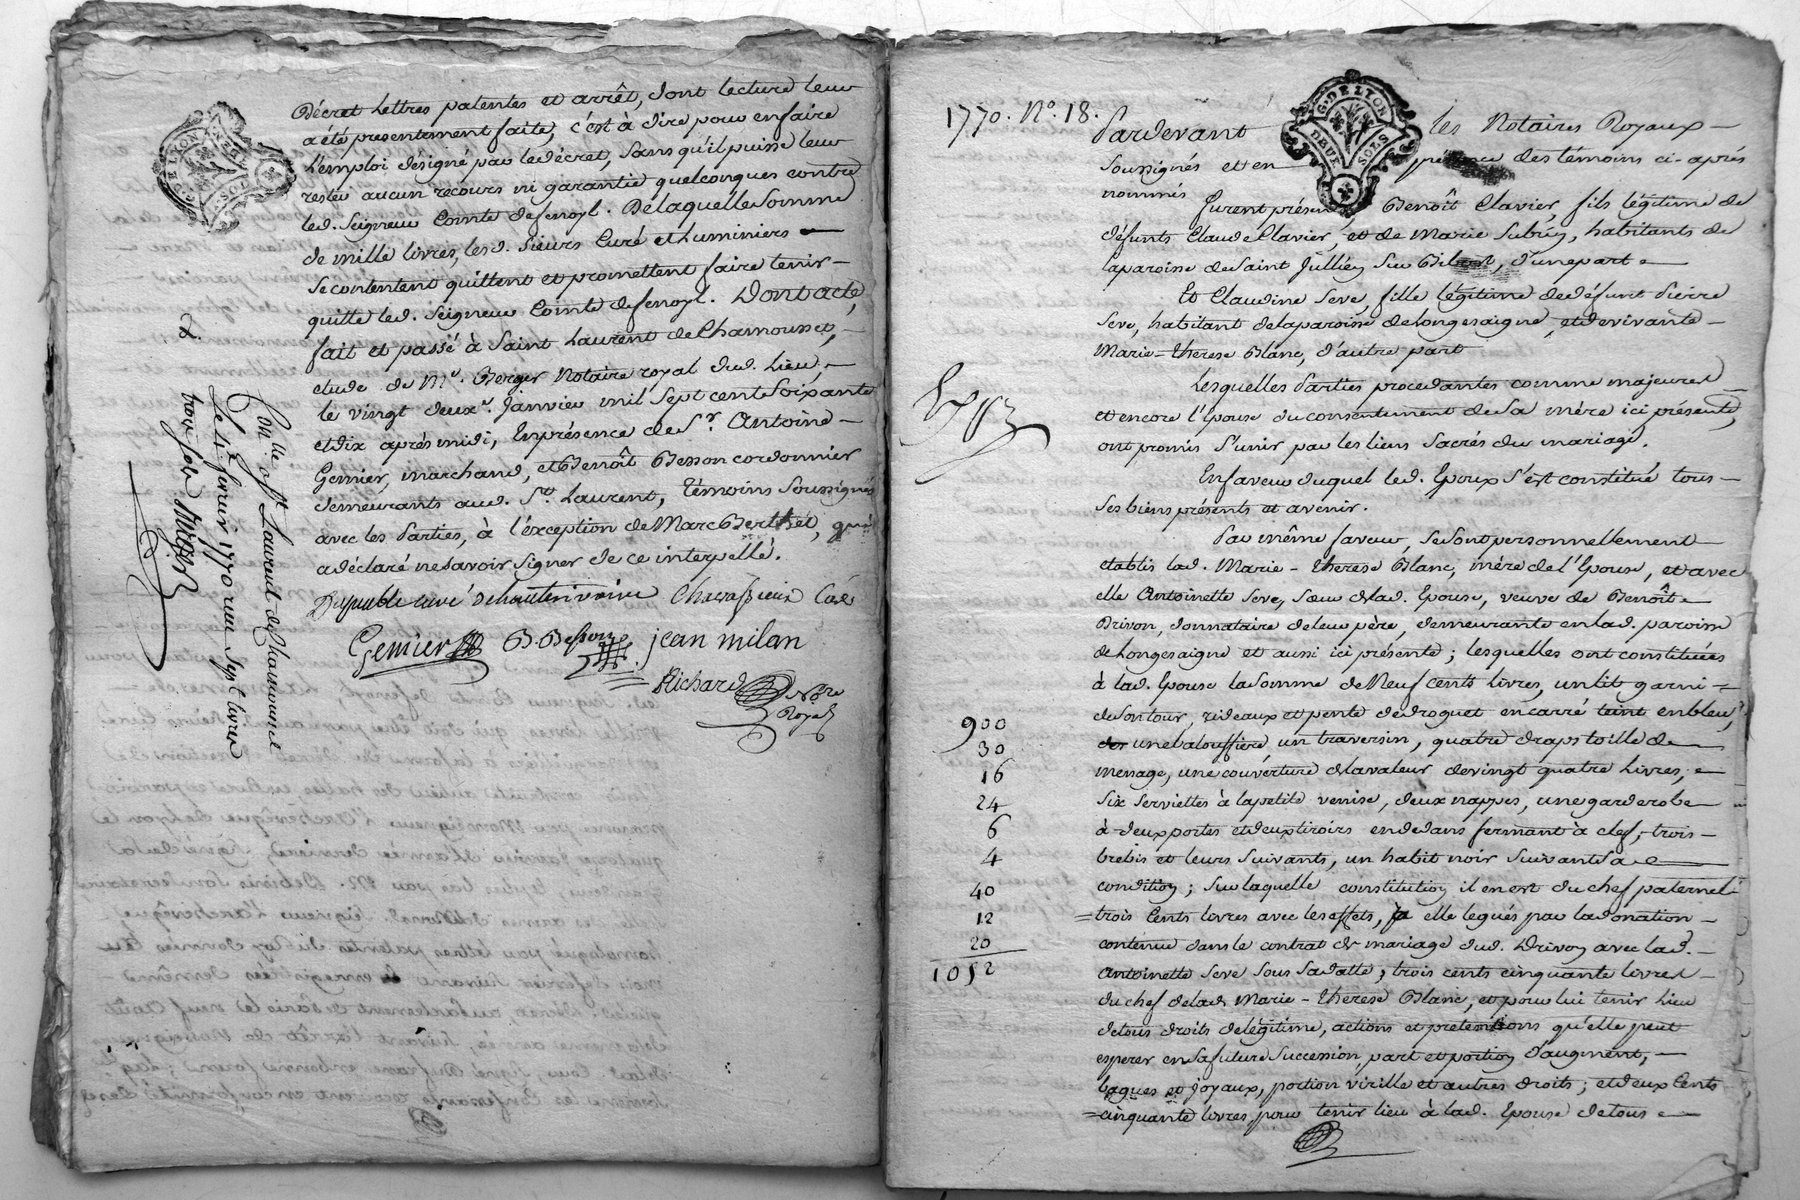 Décret Lettres patentes et arrêt, dont lecture leur
a été presentement faite, c'est à dire pour en faire
L'emploi designé par le décret, sans qu'il puisse leur
rester aucun recours ni garantie quelconques contre
led. Seigneur Comte de fenoyl. De laquelle Somme
de mille livres, lesd. Sieurs Curé et Luminiers
se contentent quittent et promettent faire tenir
quitte led. Seigneur Comte de fenoyl. Dont acte,
fait et passé à Saint Laurent de Chamousset,
etude de Me. Berger Notaire royal dud. Lieu,
le vingt deuxe. Janvier mil Sept cents Soixante
et dix après midi, En présence de Sr. Antoine
Gemier, marchand, et Benoît Besson cordonnier
demeurants aud. St. Laurent, Témoins Soussignés
avec les Parties, à l'éxception de Marc Berthet, qui
a déclaré ne savoir signer de ce interpellé.
Dupuable curé d'hauterivoire Chavassieux
Gemier B. Besson jean milan
Richard Nore
Royal
Con.lle. a St. Laurent de Chamousset
Le 4e fevrier 1770 reçu sept livres
trois sols
DEUX SOLS G. DE LYON
1770. No. 18.
G. DE LYON DEUX SOLS
Pardevant les Notaires Royaux
Soussignés et en présence des témoins ci-après
nommés
Furent présents Benoît Clavier, fils légitime de
défunts Claude Clavier, et de Marie Subrin, habitants de
la paroisse de Saint Jullien Sur Bibost, d'une part
Et Claudine Seve, fille légitime de défunt Pierre
Seve, habitant de la paroisse de Longesaigne, et de vivante
Marie=Therese Blanc, d'autre part
Lesquelles Parties procedantes comme majeures
et encore l'Epouse du consentement de Sa mère ici présente,
ont promis S'unir par les liens Sacrés du mariage,
En faveur duquel led. Epoux s'est constitué tous
Ses biens présents et avenir.
Par même faveur, se sont personnellement
etablis lad. Marie-Therese Blanc, mère de l'Epouse, et avec
elle Antoinette Seve, Sœur de lad. Epouse, veuve de Benoît
Drivon, donnataire de leur père, demeurante en lad. paroisse
de Longesaigne et aussi ici présente; lesquelles ont constituées
à lad. Epouse la Somme de Neuf cents livres, un lit garni
de Son tour, rideaux et pente de droguet en carré teint en bleu,
une baloussière un traversin, quatre draps toille de
menage, une couverture de la valeur de vingt quatre Livres,
Six Serviettes à la petite venise, deux nappes, une garderobe
à deux portes et deux tiroirs en dedans fermant à clef, trois
brebis et leurs Suivants, un habit noir Suivant Sa
condition; Sur laquelle constitution il en est du chef paternel
trois Cents livres avec les effets, à elle legués par la donation
contenue dans le contrat de mariage dud. Drivon avec lad.
Antoinette Seve Sous Sa datte, trois cents cinquante livres
du chef de lad. Marie-Therese Blanc, et pour lui tenir Lieu
de tous droits de légitime, actions et pretentions qu'elle peut
esperer en Sa future Succession, part et portion d'augment,
bagues et joyaux, portion virille et autres droits; et deux Cents
cinquante livres, pour tenir lieu à lad. Epouse de tous
900
30
16
24
6
4
40
12
20
1052